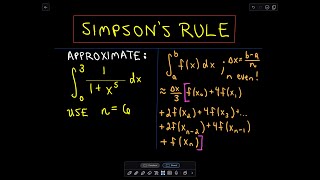 SIMPSON'S RULE
APPROXIMATE:
∫₀³ 1/(1+x⁵) dx
USE n=6
∫ₐᵇ f(x)dx ; Δx = (b-a)/n
n even!
≈ Δx/3 [f(x₀)+4f(x₁)
+2f(x₂)+4f(x₃)+...
+2f(xₙ₋₂)+4f(xₙ₋₁)
+f(xₙ)]